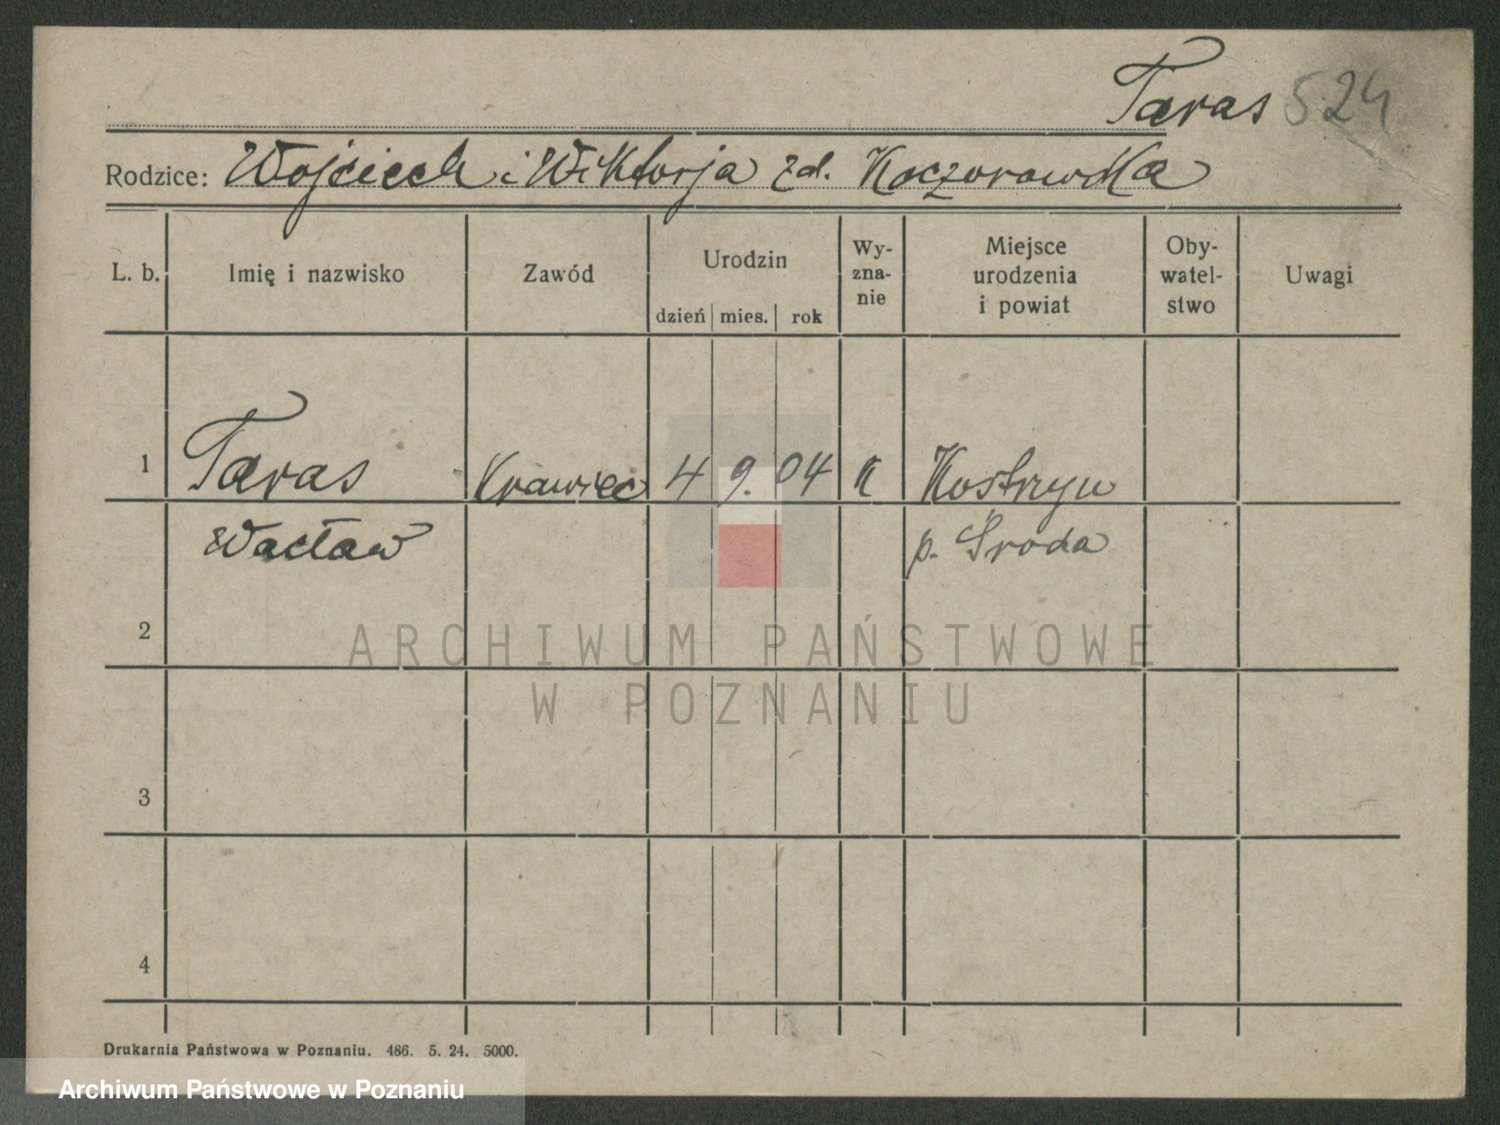 Taras 524
Rodzice: Wojciech i Wiktorja zd. Kaczorowska
L. b. Imię i nazwisko Zawód Urodzin Wy-zna-nie Miejsce urodzenia i powiat Oby-watel-stwo Uwagi
dzień mies. rok
1 Taras Krawiec 4 9. 04 k Kostrzyn
Wacław p. Środa
2
ARCHIWUM PAŃSTWOWE
W POZNANIU
3
4
Drukarnia Państwowa w Poznaniu. 486. 5. 24. 5000.
Archiwum Państwowe w Poznaniu